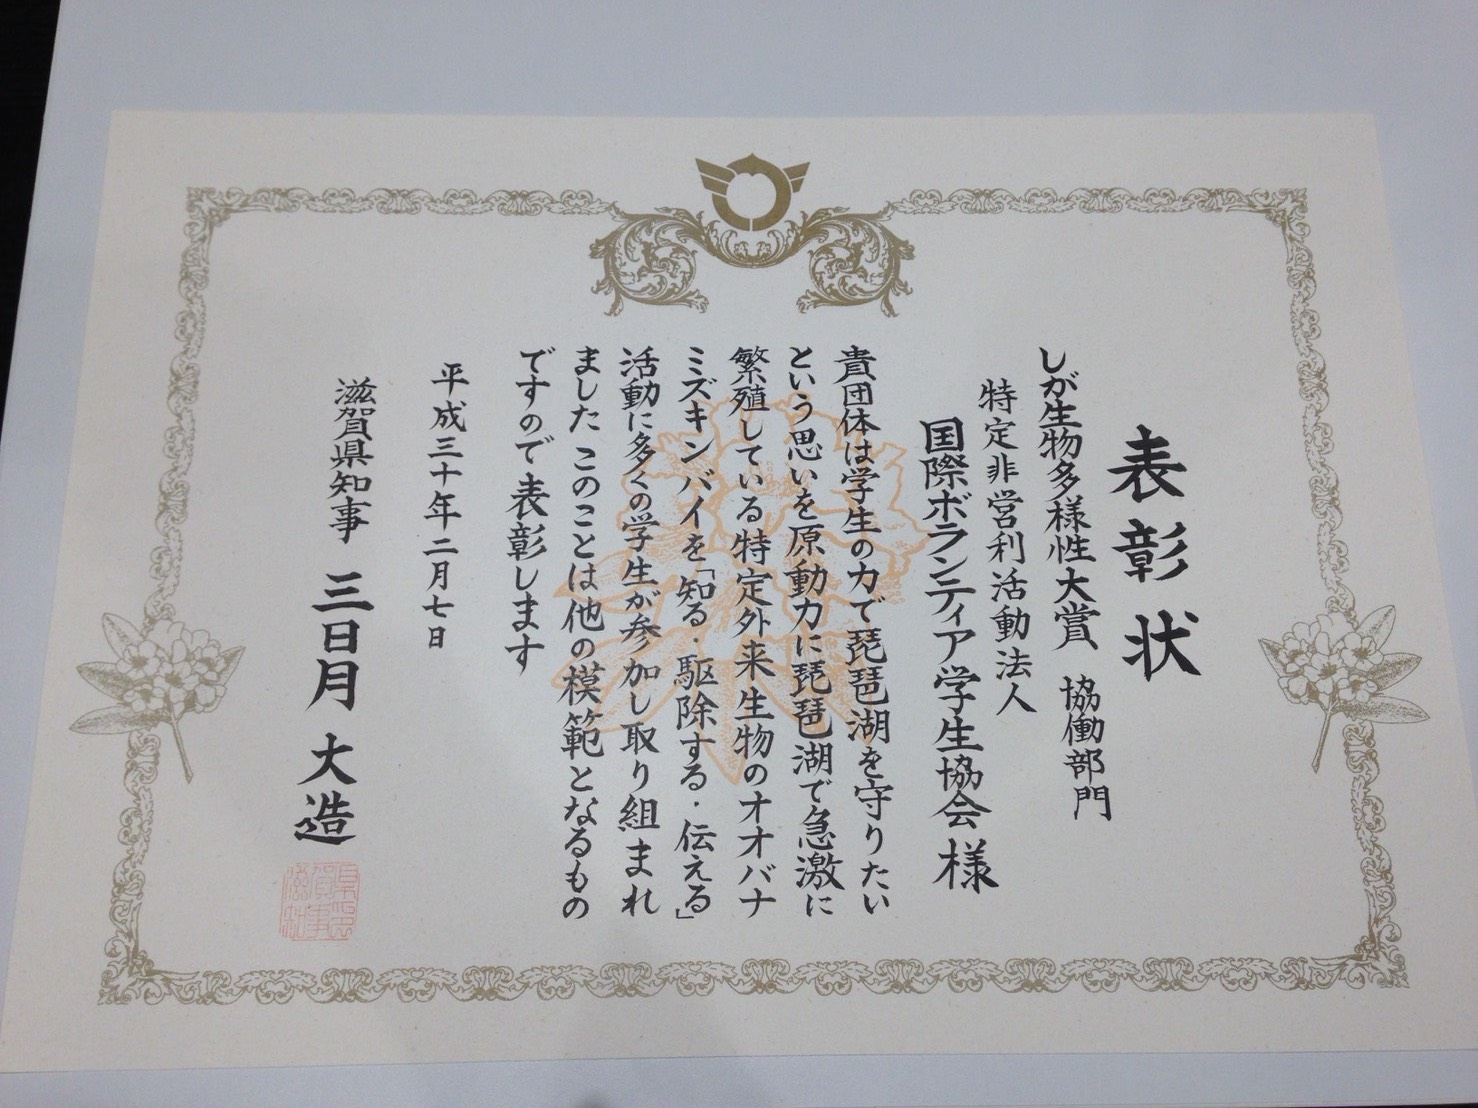 表彰状
しが生物多様性大賞 協働部門
特定非営利活動法人
国際ボランティア学生協会様
貴団体は学生の力で琵琶湖を守りたい
という思いを原動力に琵琶湖で急激に
繁殖している特定外来生物のオオバナ
ミズキンバイを「知る・駆除する・伝える」
活動に多くの学生が参加し取り組まれ
ました このことは他の模範となるもの
ですので表彰します
平成三十年二月七日
滋賀県知事 三日月大造